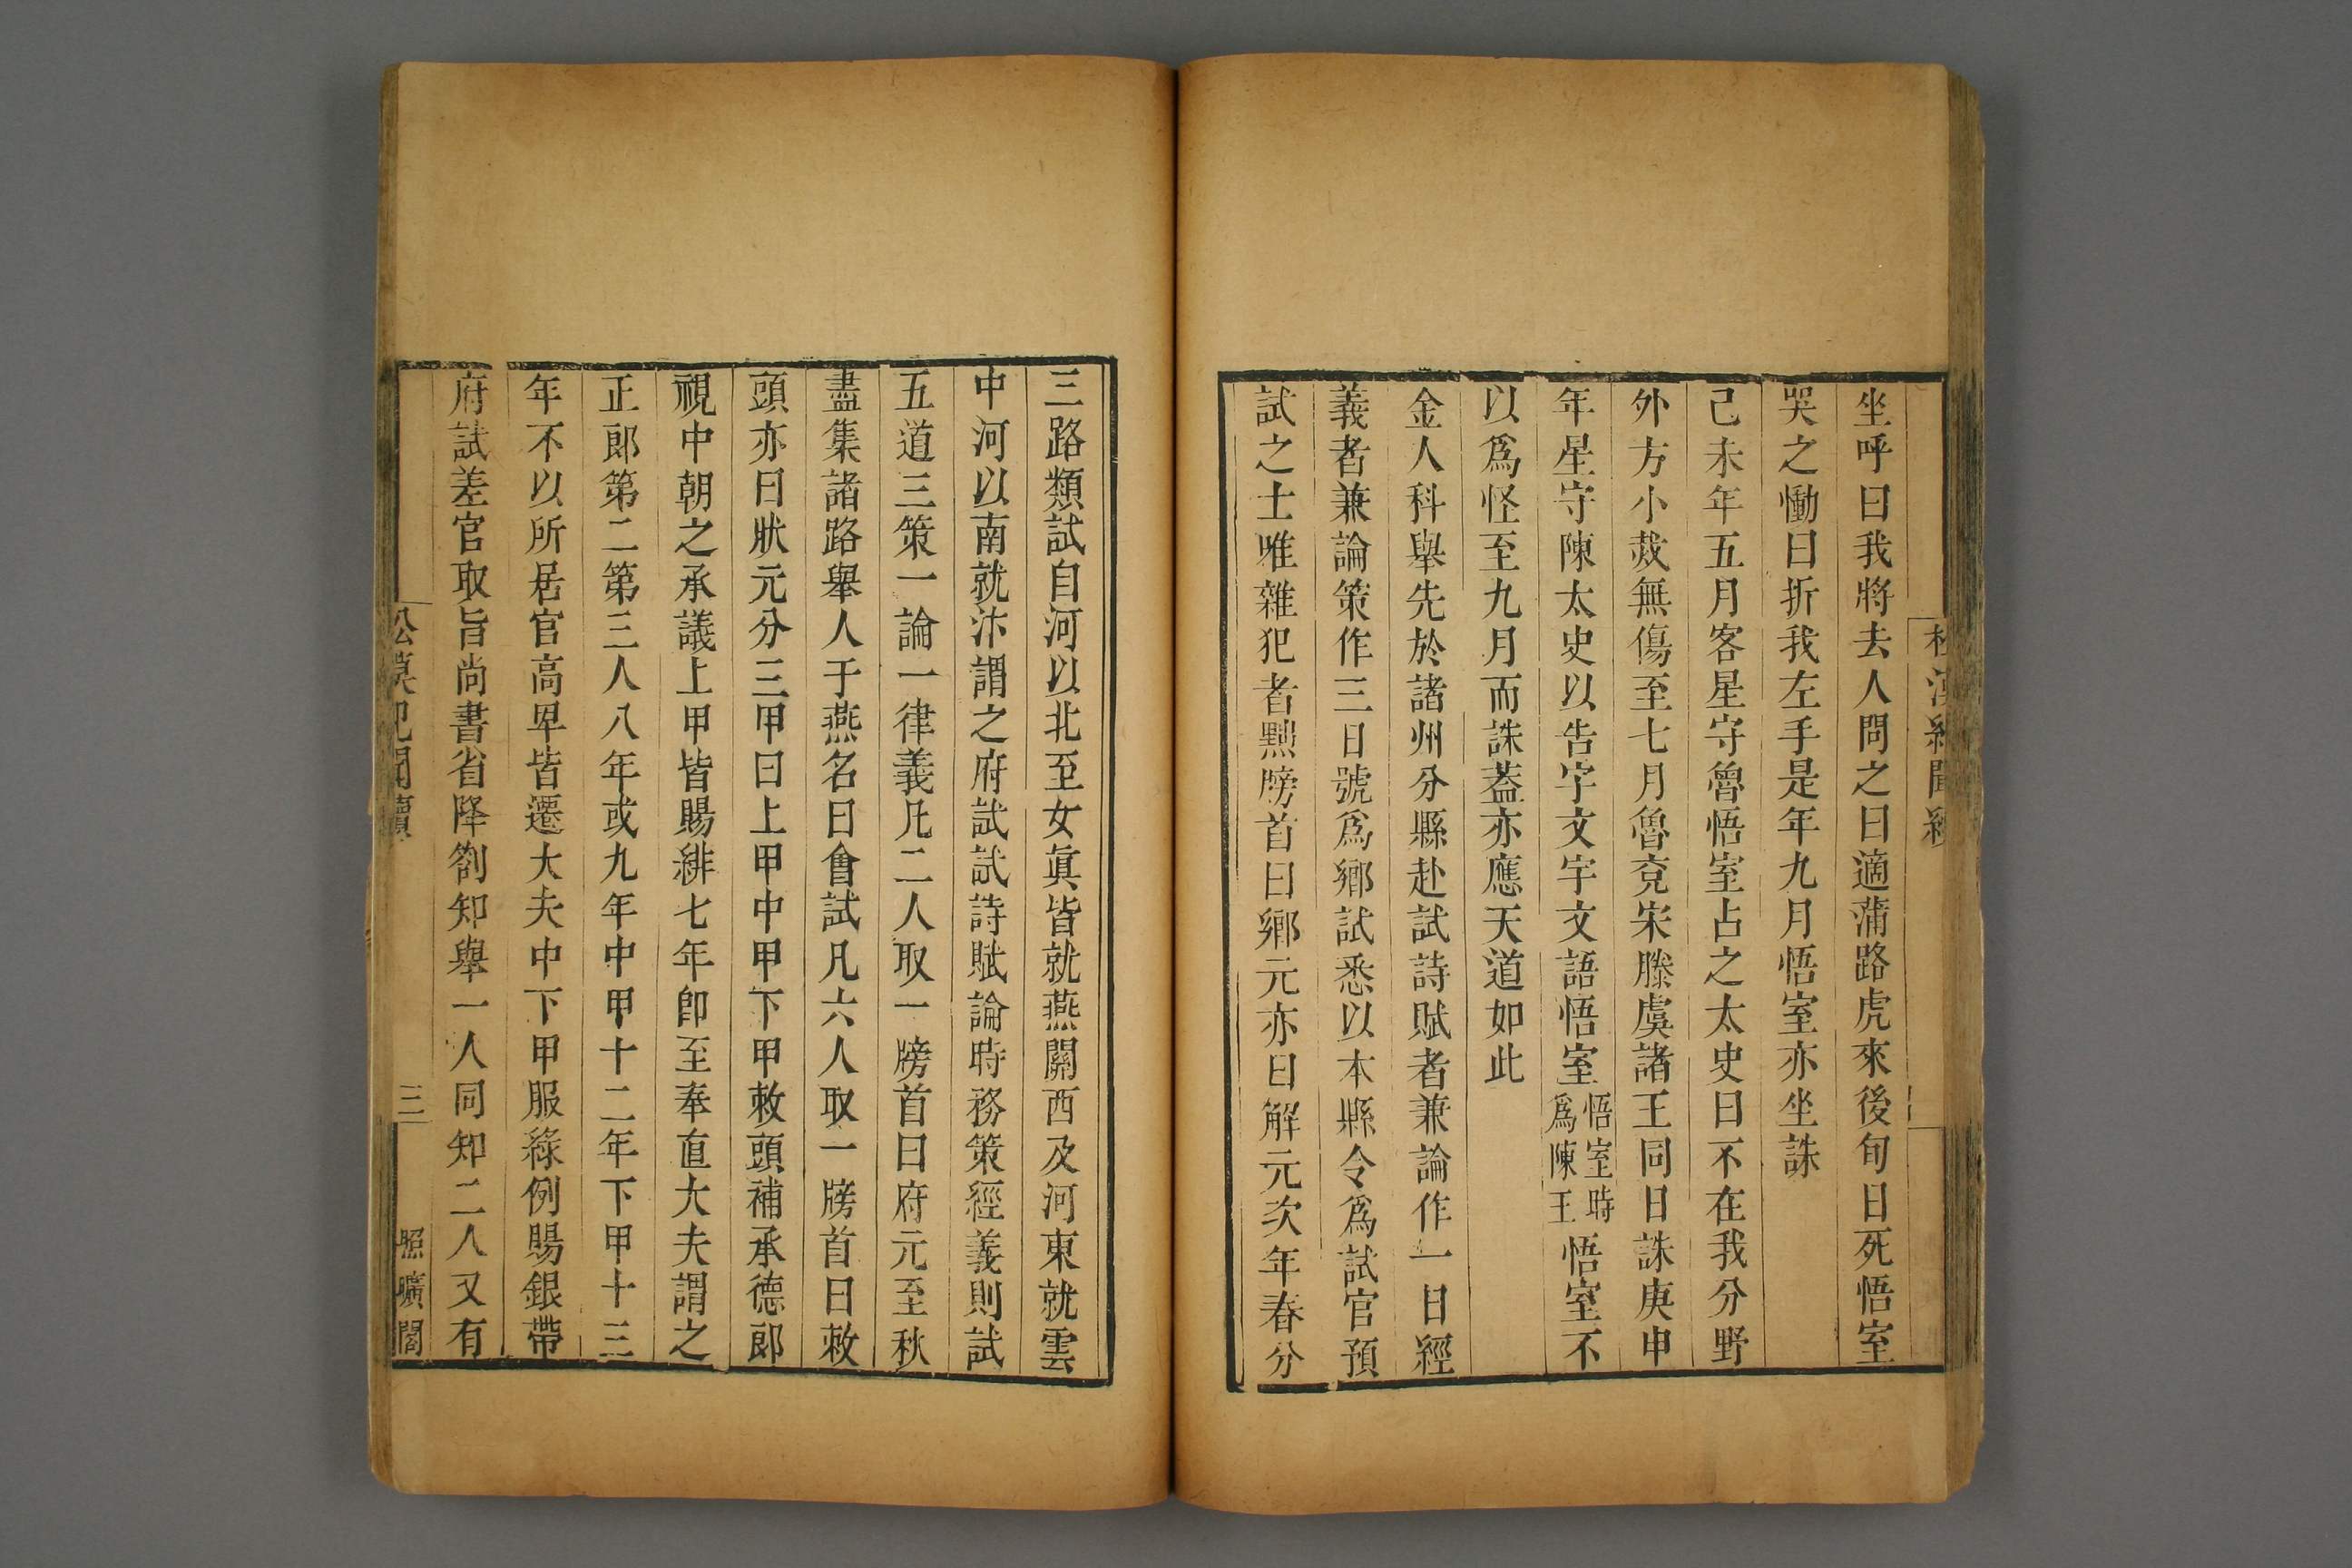 坐呼曰我將去人問之曰適蒲路虎來後旬日死悟室
哭之慟曰折我左手是年九月悟室亦坐誅
己未年五月客星守魯悟室占之太史曰不在我分野
外方小烖無傷至七月魯兗宋滕虞諸王同日誅庚申
年星守陳太史以告宇文宇文語悟室悟室時爲陳王悟室不
以爲怪至九月而誅葢亦應天道如此
金人科舉先於諸州分縣赴試詩賦者兼論作一日經
義者兼論策作三日號爲鄉試悉以本縣令爲試官預
試之士唯雜犯者黜牓首曰鄉元亦曰解元次年春分
三路類試自河以北至女眞皆就燕關西及河東就雲
中河以南就汴謂之府試試詩賦論時務策經義則試
五道三策一論一律義凡二人取一牓首曰府元至秋
盡集諸路舉人于燕名曰會試凡六人取一牓首曰敕
頭亦曰狀元分三甲曰上甲中甲下甲敕頭補承德郎
視中朝之承議上甲皆賜緋七年卽至奉直大夫謂之
正郎第二第三人八年或九年中甲十二年下甲十三
年不以所居官高卑皆遷大夫中下甲服綠例賜銀帶
府試差官取旨尚書省降劄知舉一人同知二人又有
三
照曠閣